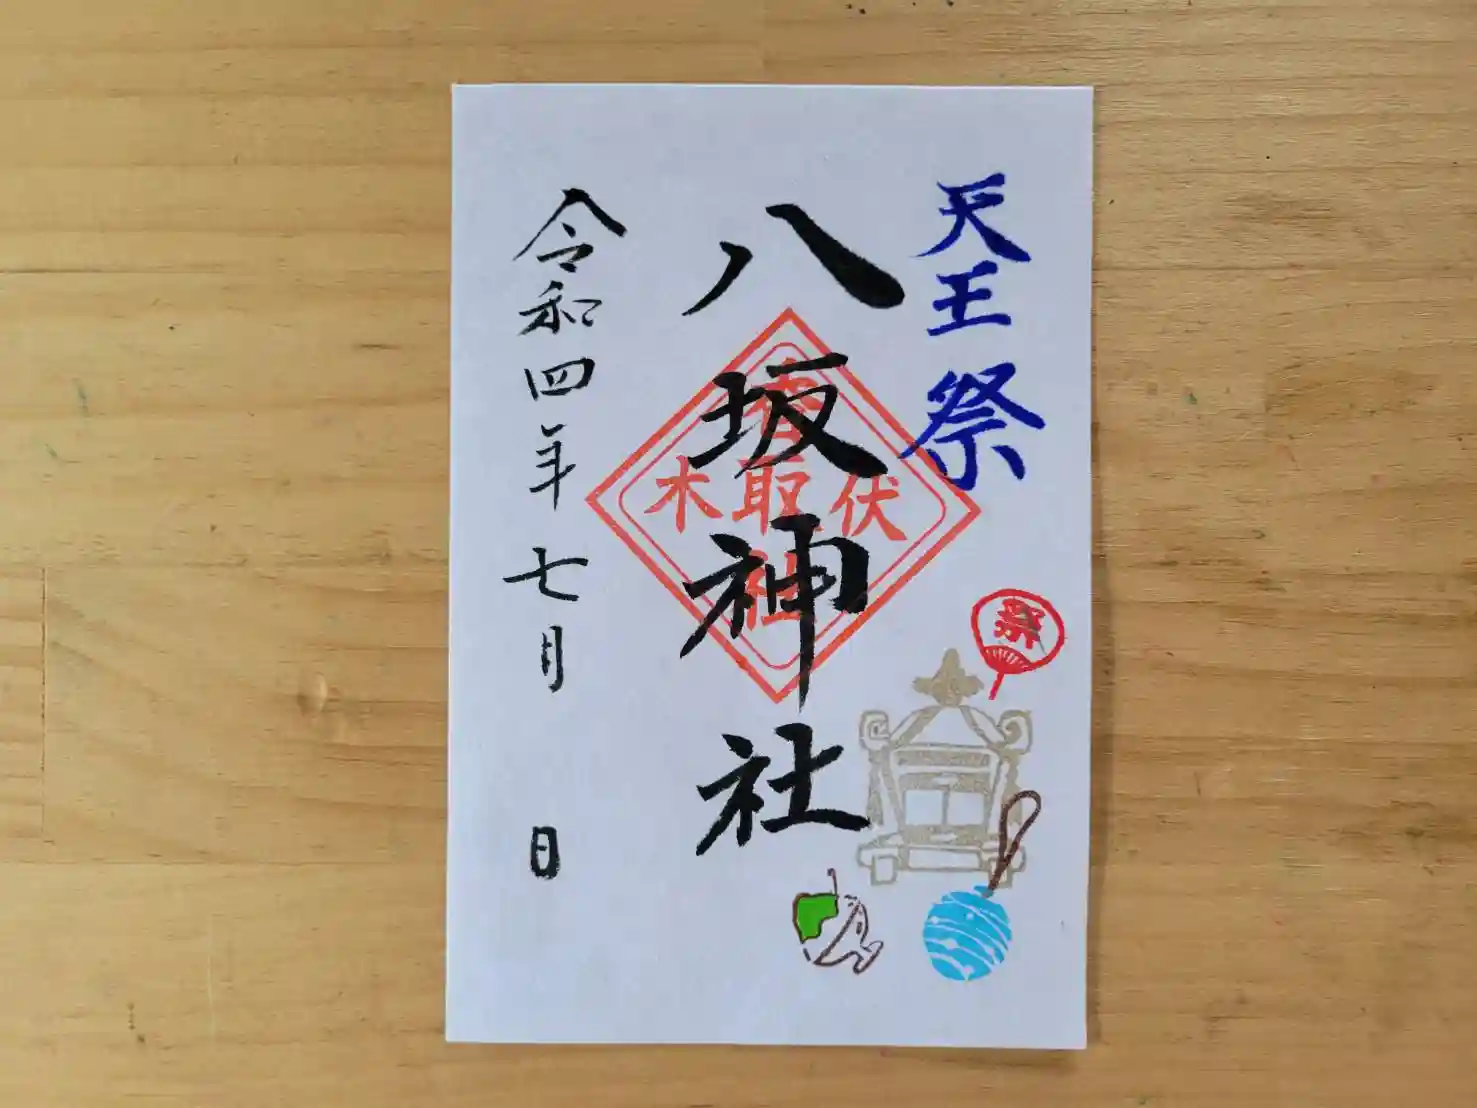 天王祭
八坂神社
伏木
香取社
祭
令和四年七月 日